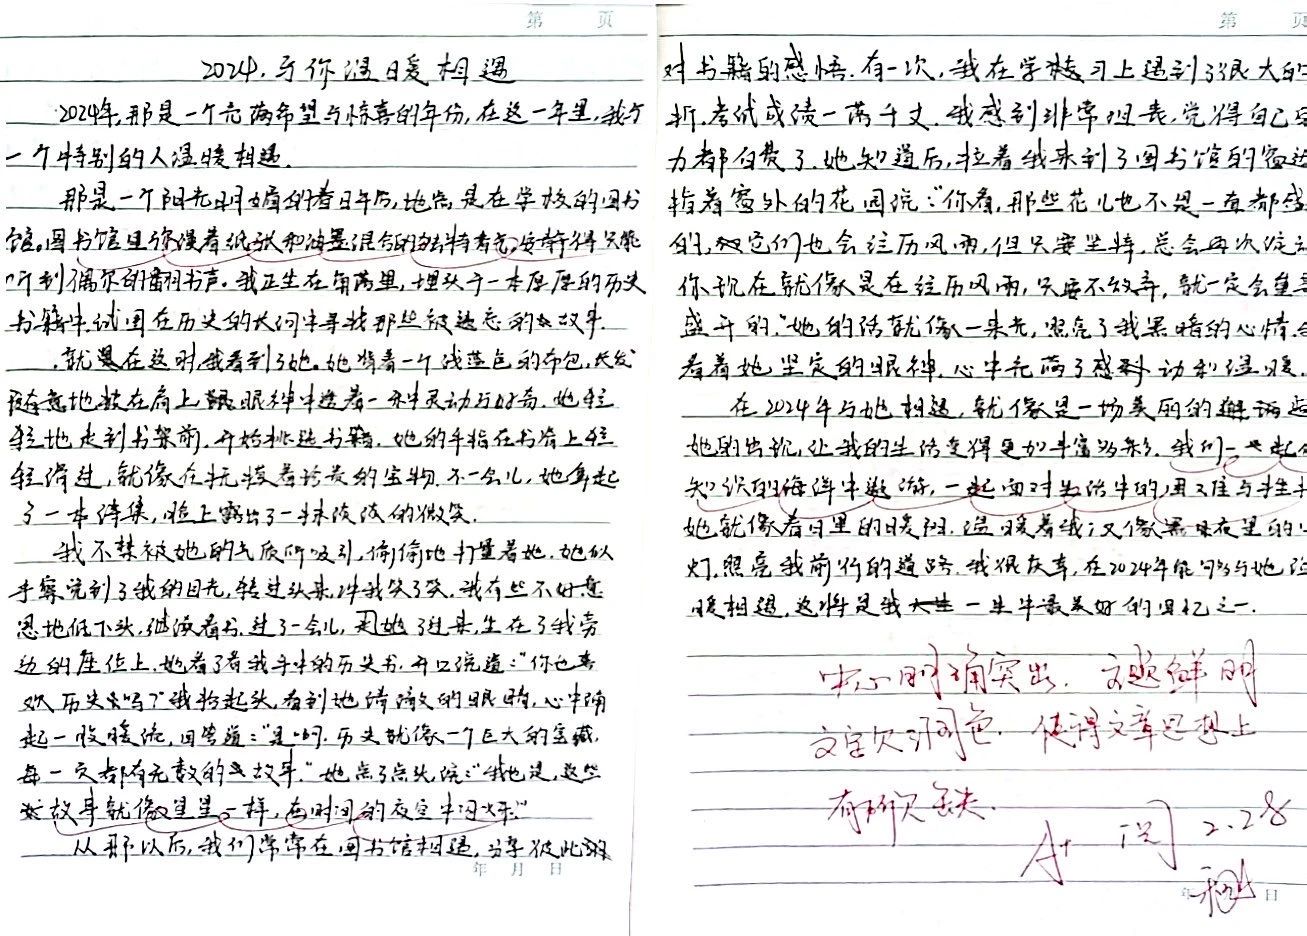 第 页
2024.与你温暖相遇
2024年,那是一个充满希望与惊喜的年份,在这一年里,我与
一个特别的人温暖相遇.
那是一个阳光明媚的春日午后,地点是在学校的图书
馆。图书馆里弥漫着纸张和油墨混合的独特香气,安静得只能
听到偶尔的翻书声。我正坐在角落里,埋头于一本厚厚的历史
书籍中,试图在历史的长河中寻找那些被遗忘的故事.
就是在这时,我看到了她。她背着一个浅蓝色的布包,长发
随意地披在肩上 眼神中透着一种灵动与好奇.她轻
轻地走到书架前.开始挑选书籍.她的手指在书脊上轻
轻滑过,就像在抚摸着珍贵的宝物.不一会儿,她拿起
了一本诗集,脸上露出了一抹淡淡的微笑.
我不禁被她的气质所吸引,偷偷地打量着她.她似
乎察觉到了我的目光,转过头来,冲我笑了笑.我有些不好意
思地低下头,继续看书.过了一会儿,她了过来,坐在了我旁
边的座位上.她看了看我手中的历史书.开口说道:"你也喜
欢历史吗?"我抬起头,看到她清澈的眼睛,心中涌
起一股暖流,回答道:"是啊.历史就像一个巨大的宝藏.
每一页都有无数的故事."她点了点头,说:"我也是,这些
故事就像星星一样,在时间的夜空中闪烁"
从那以后,我们常常在图书馆相遇,分享彼此
年 月 日
第 页
对书籍的感悟.有一次,我在学校习上遇到了很大的
折.考试成绩一落千丈.我感到非常沮丧,觉得自己
力都白费了.她知道后,拉着我来到了图书馆的窗边
指着窗外的花园说:"你看,那些花儿也不是一直都盛
的,它们也会经历风雨,但只要坚持,总会再次绽
你现在就像是在经历风雨,只要不放弃,就一定会重
盛开的."她的话就像一束光,照亮了我黑暗的心情.
看着她坚定的眼神,心中充满了感动和温暖.
在2024年与她相遇,就像是一场美丽的邂逅
她的出现,让我的生活变得更加丰富多彩.我们一起
知识的海洋中遨游,一起面对生活中的困难与挫
她就像春日里的暖阳.温暖着我;又像黑夜里的
灯.照亮我前行的道路.我很庆幸,在2024年能够与她
暖相遇,这将是我一生中最美好的回忆之一.
中心明确突出.文题鲜明
文字欠润色.使得文章思想上
有所欠缺.
A+ 阅 2.28
年 日